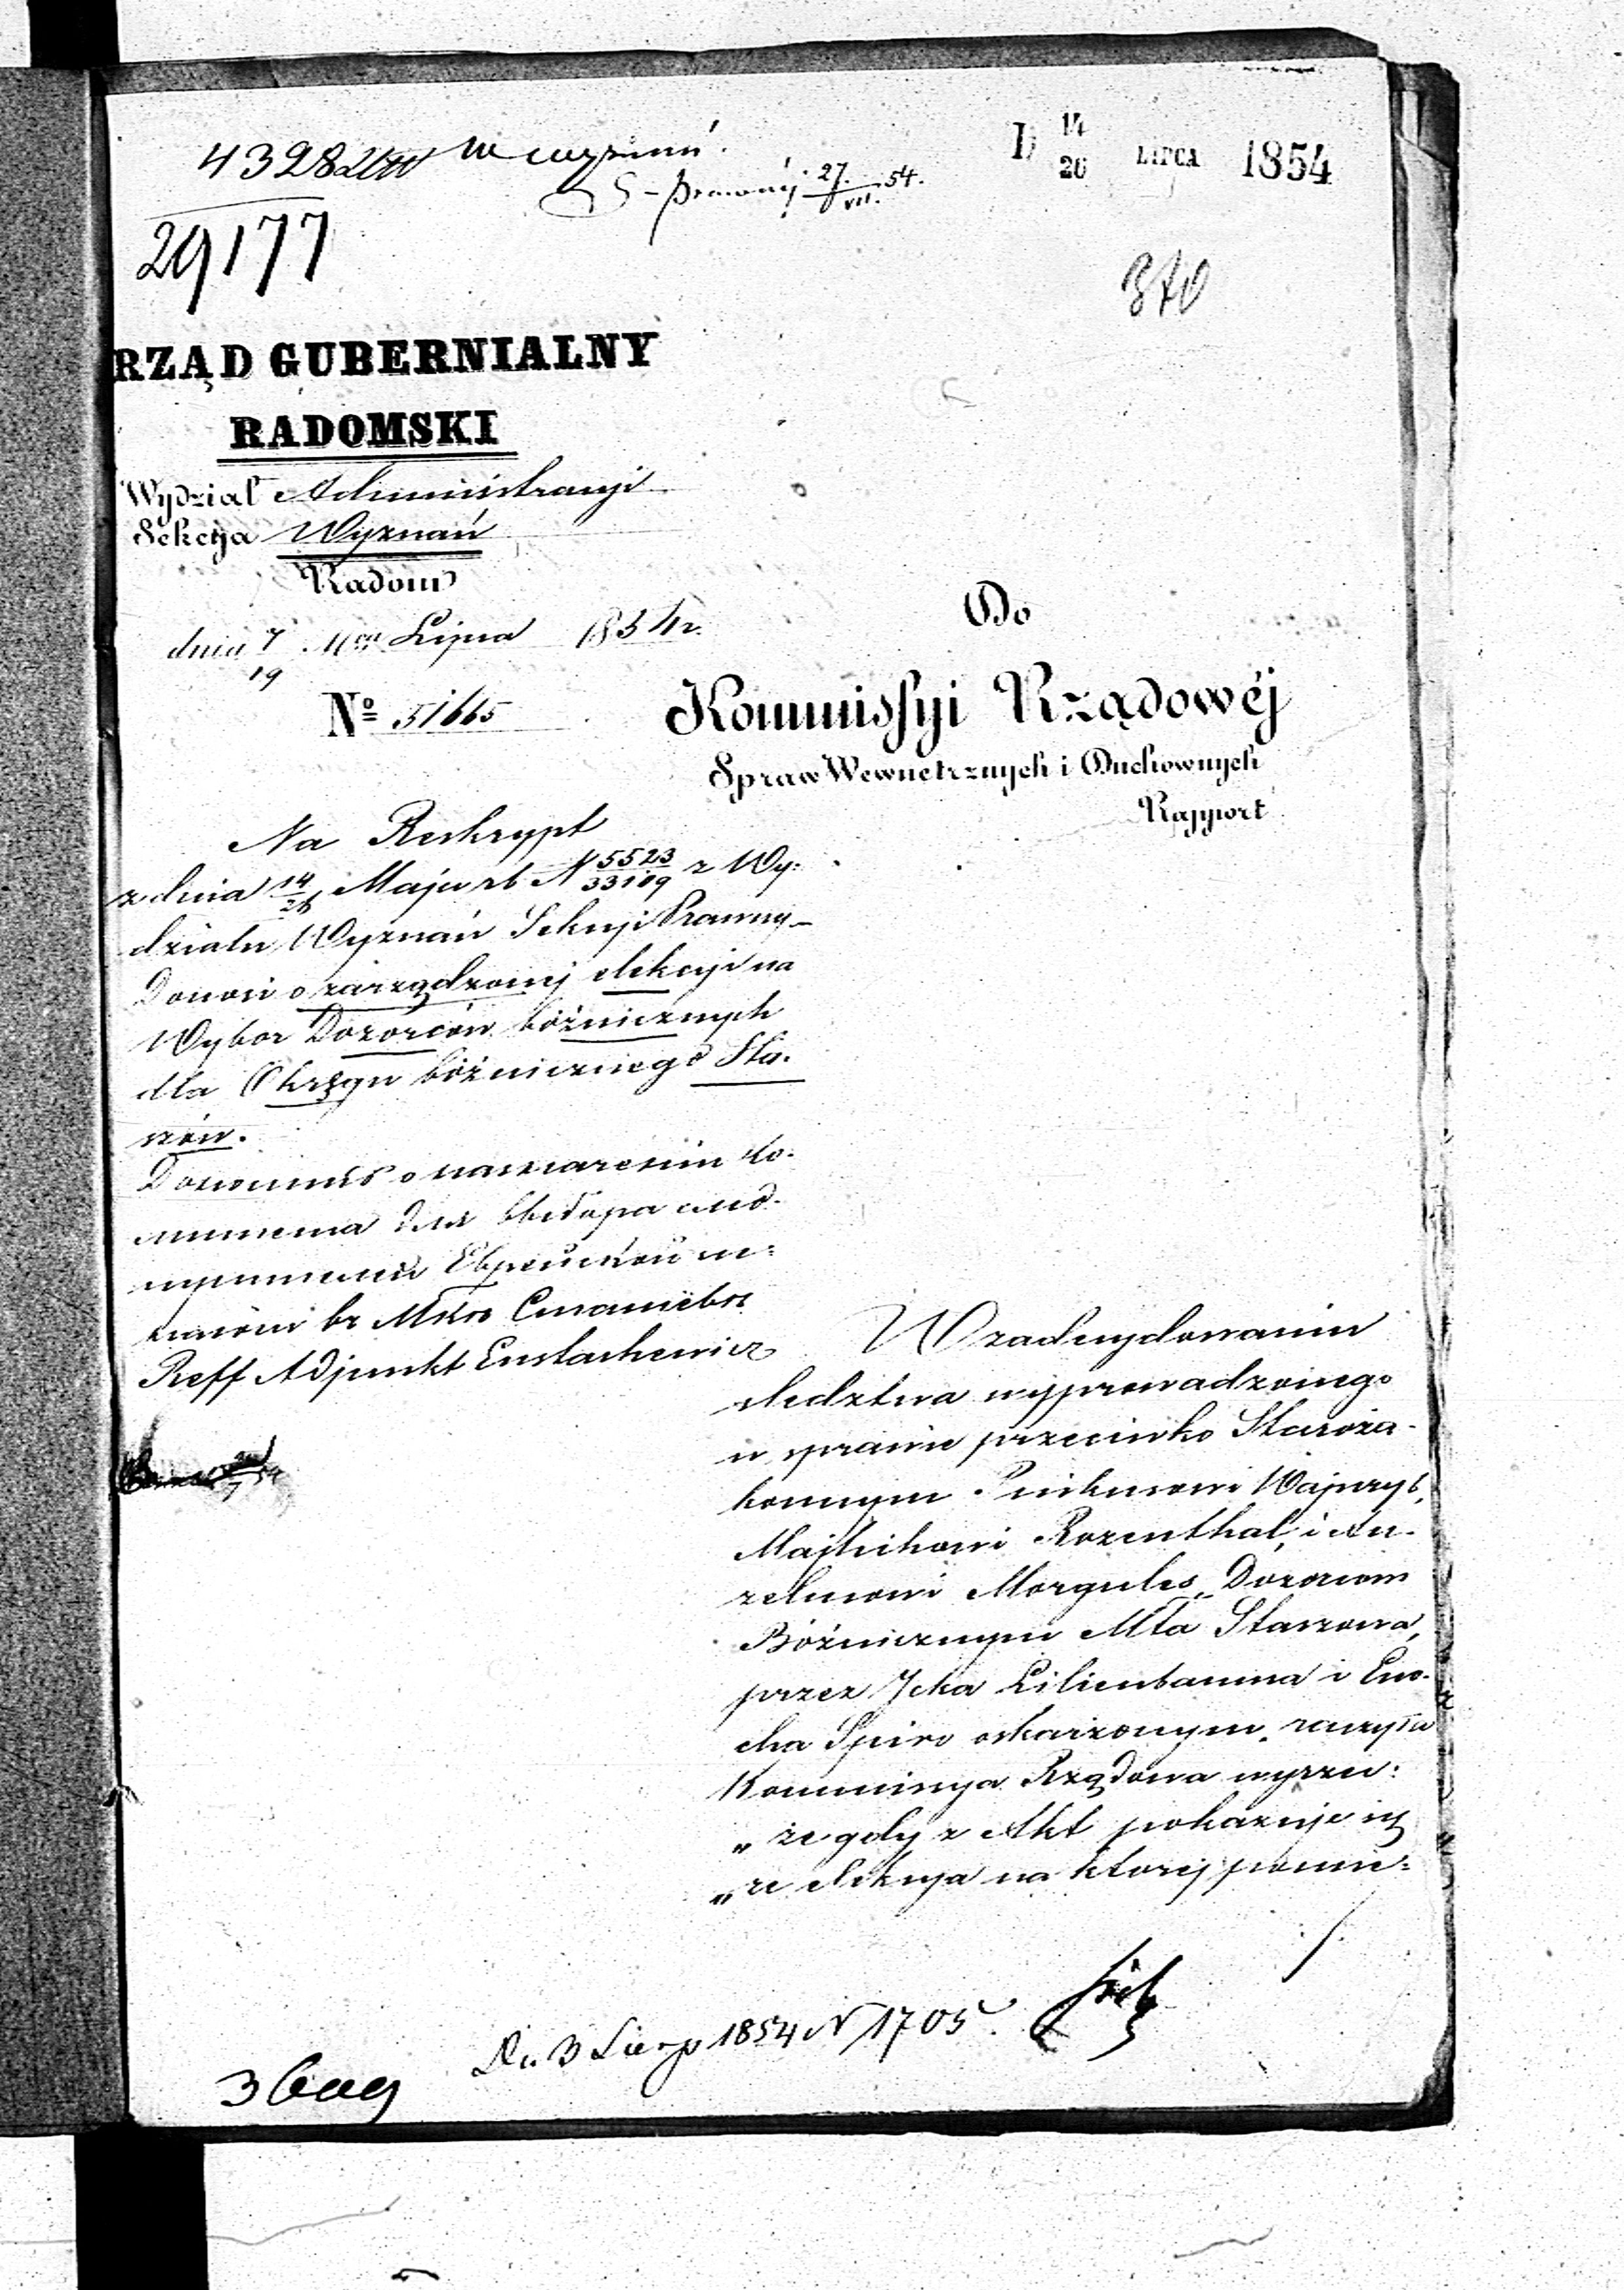 43982
W wyznań.
29177
S. Prawnéj 27/VII 54.
D 14/26 LIPCA 1854
370
RZĄD GUBERNIALNY
RADOMSKI
Wydział Administracyi
Sekcya Wyznań
Radom
dnia 7/19 Mca Lipca 1854 r.
Nº 51665
Do
Kommissyi Rządowéj
Spraw Wewnetrznych i Duchownych
Rapport
Na Reskrypt
z dnia 14/26 Maja rb N 5523/33109 z Wy-
działu Wyznań Sekcyi Prawny
Donosi o zarządzonej elekcyi na
Wybor Dozorców bóżnicznych
dla Okręgu bóżnicznego Sta-
szów.
Donosi
Reff Adjunkt Eustachewicz
W zadecydowaniu
śledztwa wyprowadzonego
w sprawie przeciwko Staroza-
konnym Pinkusowi Wajnryb,
Majlichowi Rozenthal, i An-
zelmowi Morgules, Dozorcom
Bóżnicznym Mta Staszowa,
przez Icka Lilienbauma i Eno-
cha Spiro oskarżonym, raczyła
Kommissya Rządowa wyrzec:
„że gdy z Akt pokazuje się
„że elekcya na ktorej pomie-
./.
Dn 3 Sierp 1854 N 1705.
3